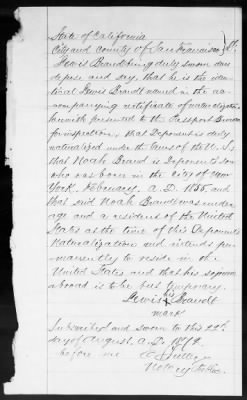 State of California
City and County of San Francisco } SS.
Lewis Brandt being duly sworn doth
depose and say, that he is the iden-
tical Lewis Brandt named in the ac-
companying certificate of naturalization
herewith presented to the Passport Bureau
for inspection, that Deponent is duly
naturalized under the laws of the U.S.;
that Noah Brand is Deponent's son
who was born in the City of New
York, February, A.D. 1855, and
that said Noah Brandt was under
age and a resident of the United
States at the time of this Deponent's
Naturalization and intends per-
manently to reside in the
United States and that his sojourn
abroad is to be but temporary.
Lewis his X Brandt
mark
Subscribed and sworn to this 22nd
day of August, A.D. 1872
before me
Notary Public